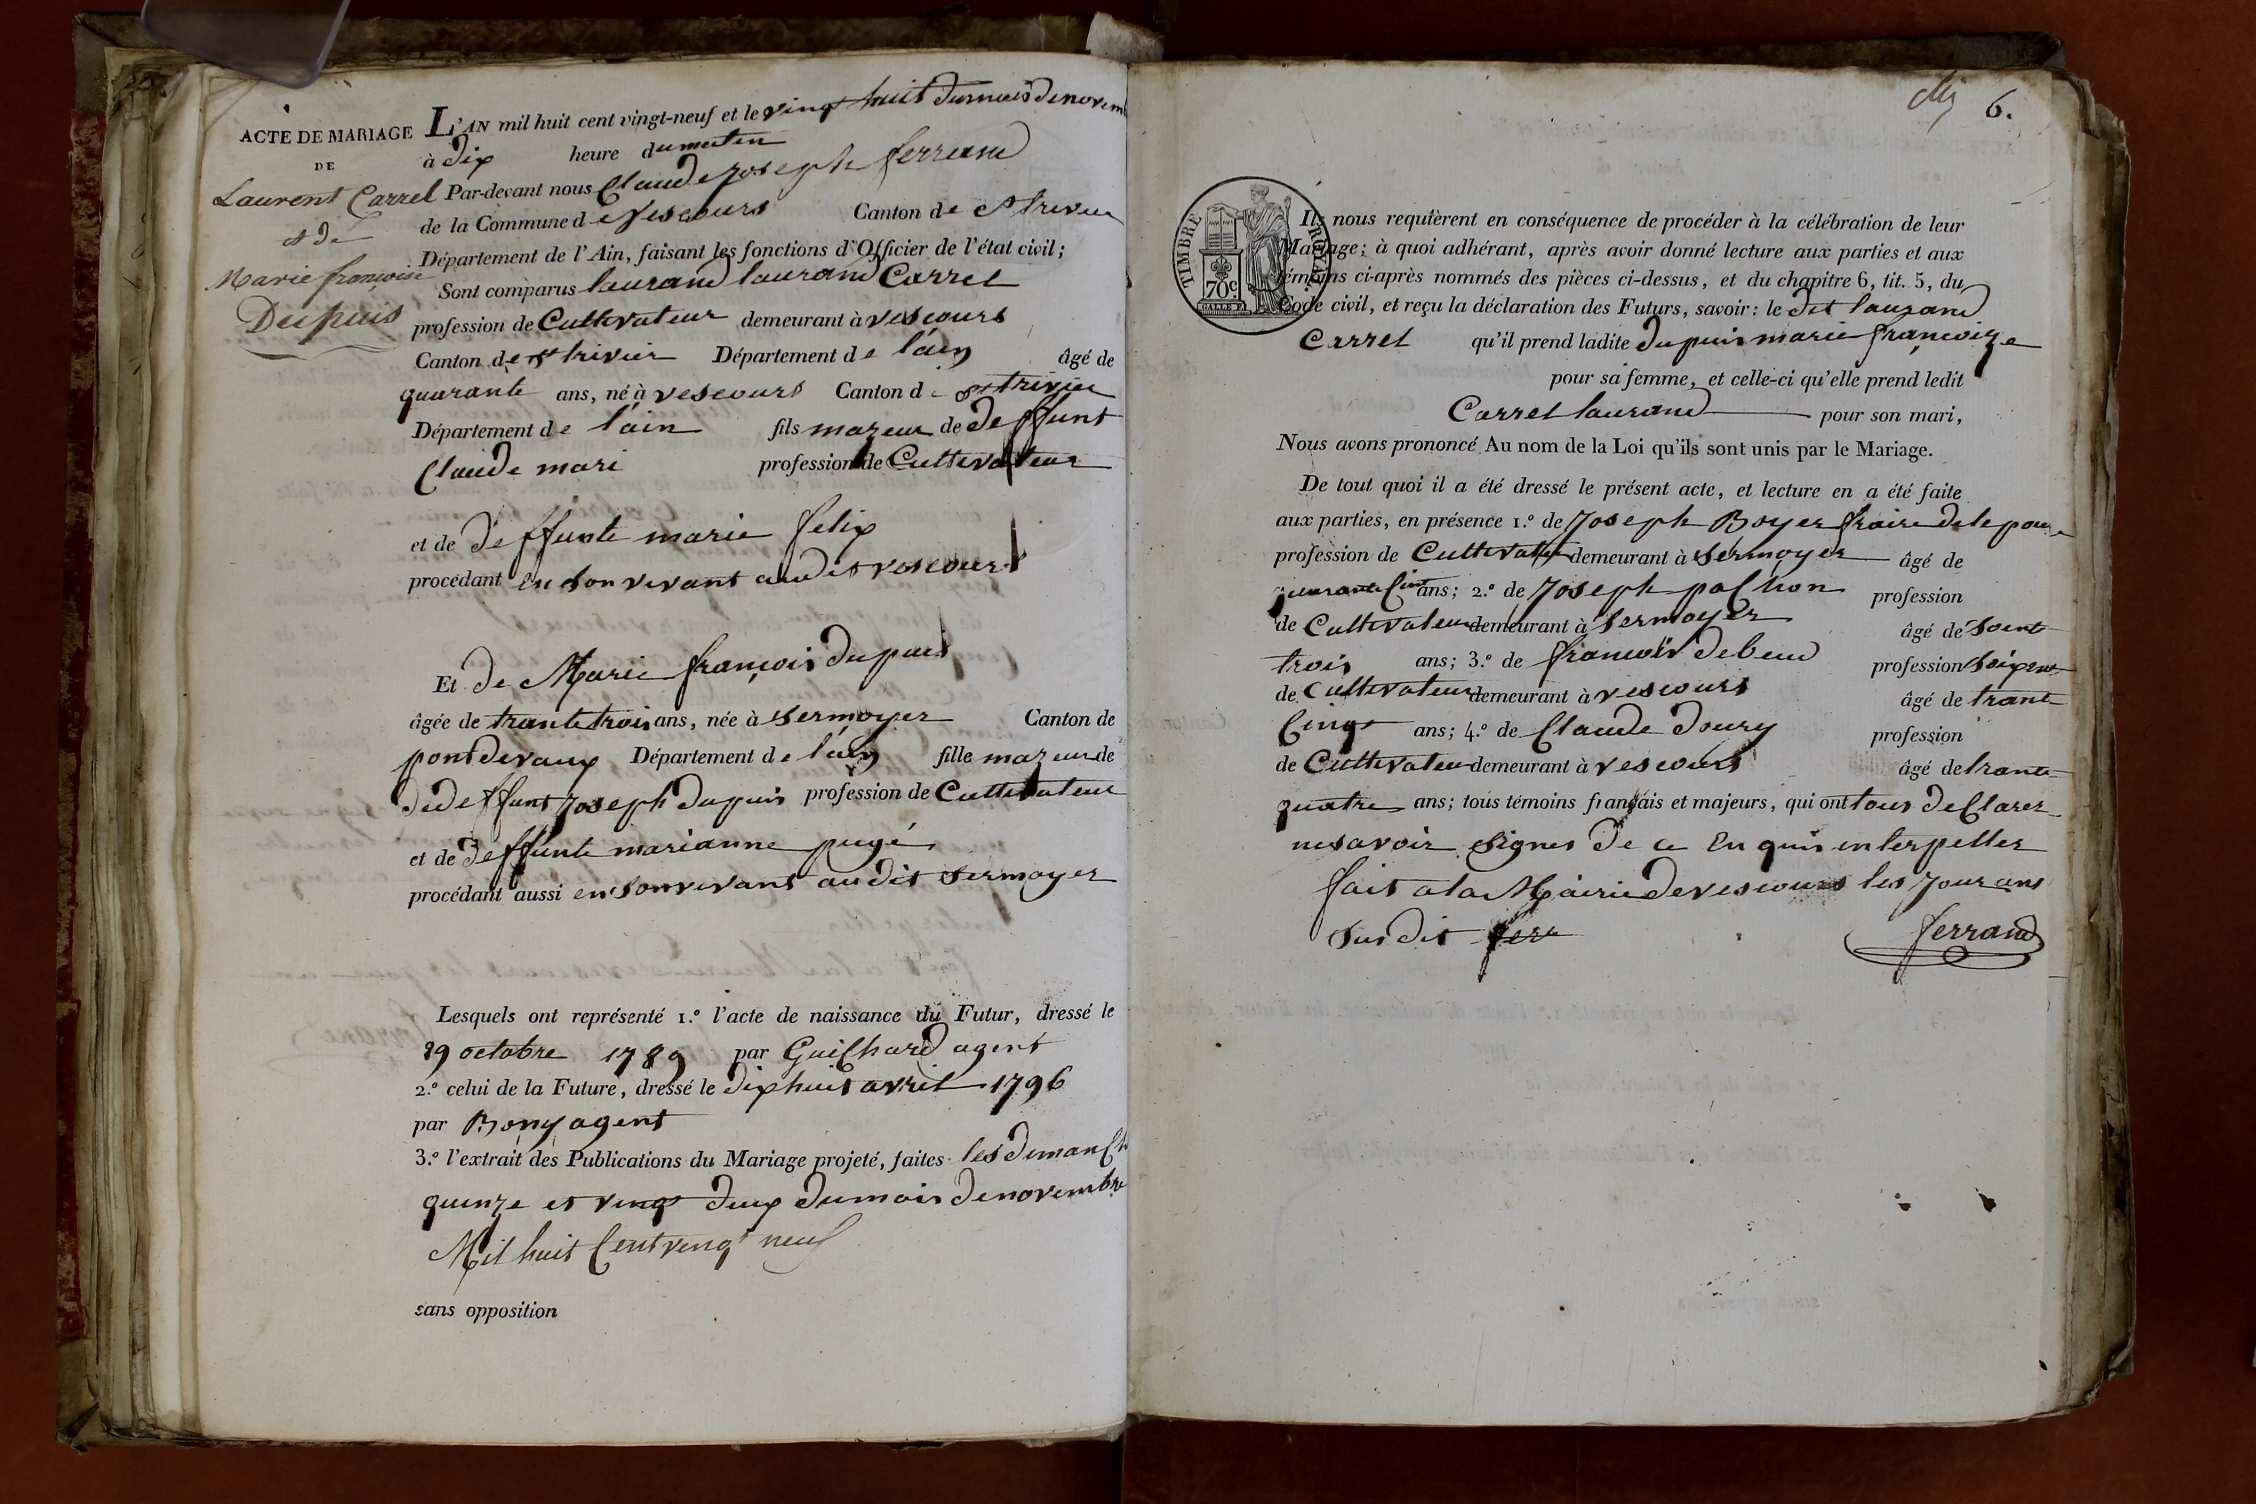 ACTE DE MARIAGE
DE
Laurent Carrel
et de
Marie françoise
Dupuis
L'AN mil huit cent vingt-neuf et le vingt huit dumois denovem
à dix heure dumatin
Par-devant nous Claude joseph ferrand
de la Commune de vescours Canton de st trivier
Département de l'Ain, faisant les fonctions d'Officier de l'état civil;
Sont comparus laurand laurand Carrel
profession de Cultivateur demeurant à vescours
Canton de st trivier Département de l'ain âgé de
quarante ans, né à vescours Canton de st trivier
Département de l'ain fils mazeur de deffunt
Claude mari profession de Cultivateur
et de deffunte marie felix
procédant en son vivant audit vescours
Et de Marie françois dupuis
âgée de trante trois ans, née à sermoyer Canton de
pontdevaux Département de l'ain fille mazeur de
dedeffunt joseph dupuis profession de Cultivateur
et de deffunte marianne pugé
procédant aussi en sonvivant audit sermoyer
Lesquels ont représenté 1.º l'acte de naissance du Futur, dressé le
29 octobre 1789 par Guilhard agent
2.º celui de la Future, dressé le dixhuit avril 1796
par Bony agent
3.º l'extrait des Publications du Mariage projeté, faites les dimanch
quinze et vingt deux dumois denovembre
Mil huit Cent vingt neuf
sans opposition
6.
TIMBRE ROYAL
70c
Ils nous requièrent en conséquence de procéder à la célébration de leur
Mariage; à quoi adhérant, après avoir donné lecture aux parties et aux
témoins ci-après nommés des pièces ci-dessus, et du chapitre 6, tit. 5, du
Code civil, et reçu la déclaration des Futurs, savoir: le dit laurand
Carrel qu'il prend ladite dupuis marie françoize
pour sa femme, et celle-ci qu'elle prend ledit
Carrel laurand pour son mari,
Nous avons prononcé Au nom de la Loi qu'ils sont unis par le Mariage.
De tout quoi il a été dressé le présent acte, et lecture en a été faite
aux parties, en présence 1.º de joseph Boyer fraire de lepouze
profession de Cultivateur demeurant à sermoyer âgé de
quarante Cinq ans; 2.º de joseph pachon profession
de Cultivateur demeurant à sermoyer âgé de soente
trois ans; 3.º de françois debeud profession
de Cultivateur demeurant à vescours âgé de trante
Cinq ans; 4.º de Claude doury profession
de Cultivateur demeurant à vescours âgé de trante
quatre ans; tous témoins français et majeurs, qui ont tous de Clarer
nesavoir signer de ce en quis interpeller
fait a la Mairie de vescours les jour ans
sus dit ferr
ferrand